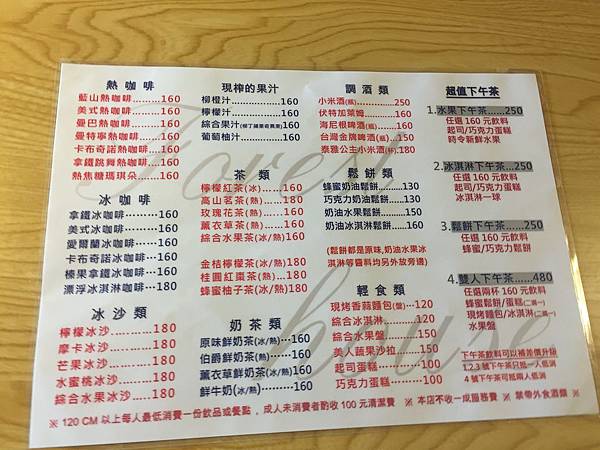 熱咖啡
藍山熱咖啡..........160
美式熱咖啡..........160
曼巴熱咖啡..........160
曼特寧熱咖啡......160
卡布奇諾熱咖啡...160
拿鐵跳舞熱咖啡...160
熱焦糖瑪琪朵......160
冰咖啡
拿鐵冰咖啡.........160
美式冰咖啡.........160
愛爾蘭冰咖啡......160
卡布奇諾冰咖啡...160
榛果拿鐵冰咖啡...160
漂浮冰淇淋咖啡...160
冰沙類
檸檬冰沙.........180
摩卡冰沙.........180
芒果冰沙.........180
水蜜桃冰沙......180
綜合水果冰沙...180
現榨的果汁
柳橙汁...............160
檸檬汁...............160
綜合果汁.........160
葡萄柚汁............160
茶類
檸檬紅茶(冰)......180
高山茗茶(熱)......180
玫瑰花茶(熱)......180
薰衣草茶(熱)......180
綜合水果茶(冰/熱)160
金桔檸檬茶(冰/熱)...180
桂圓紅棗茶(熱)......180
蜂蜜柚子茶(冰/熱)...180
奶茶類
原味鮮奶茶(冰/熱)...160
伯爵鮮奶茶(冰/熱)...160
薰衣草鮮奶茶(冰/熱)160
鮮牛奶(冰/熱)........160
調酒類
小米酒(瓶)............250
伏特加萊姆............160
海尼根啤酒(瓶)......160
台灣金牌啤酒(瓶)...160
泰雅公主小米酒(杯).180
鬆餅類
蜂蜜奶油鬆餅......130
巧克力奶油鬆餅...130
奶油水果鬆餅......150
奶油冰淇淋鬆餅...160
(鬆餅都是原味,奶油水果冰
淇淋等醬料均另外放旁邊)
輕食類
現烤香蒜麵包(盤)...120
綜合冰淇淋............120
綜合水果盤............150
美人蔬果沙拉.........150
起司蛋糕...............100
巧克力蛋糕............100
超值下午茶
1.水果下午茶......250
任選160元飲料
起司/巧克力蛋糕
時令新鮮水果
2.冰淇淋下午茶...250
任選160元飲料
起司/巧克力蛋糕
冰淇淋一球
3.鬆餅下午茶......250
任選160元飲料
蜂蜜/巧克力鬆餅
4.雙人下午茶......480
任選兩杯160元飲料
蜂蜜鬆餅/蛋糕(二選一)
現烤麵包/冰淇淋(二選一)
水果盤
下午茶飲料可以補差價升級
1.2.3號下午茶只抵一人低消
4號下午茶可抵兩人低消
※120 CM以上每人最低消費一份飲品或餐點，成人未消費者酌收100元清潔費 ※本店不收一成服務費 ※禁帶外食酒類 ※
Forest
house